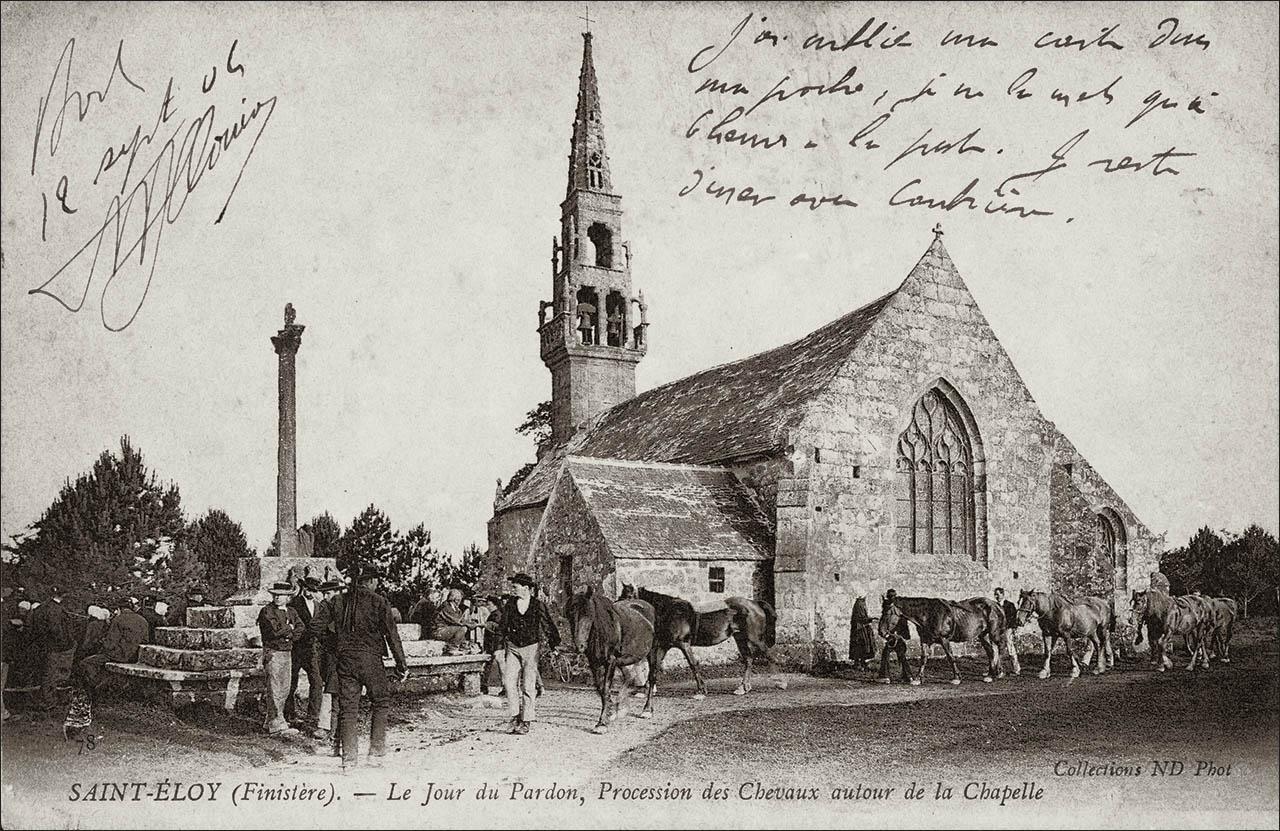 12 sept 04
J'ai oublié ma carte dans
ma poche, je ne la mets qu'à
6 heures à la poste. Je reste
diner avec
78
Collections ND Phot
SAINT-ÉLOY (Finistère). — Le Jour du Pardon, Procession des Chevaux autour de la Chapelle